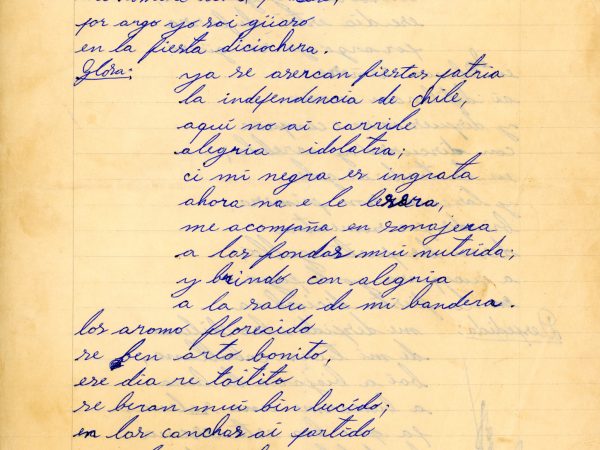 por argo yo soi güaso
en la fiesta diciochera.
Glosa: ya se asercan fiestas patria
la independencia de chile,
aquí no ai carrile
alegria idolatra;
ci mi negra es ingrata
ahora na e le lesera,
me acompaña en sonajera
a las fondas mui nutrida,
y brindo con alegria
a la salu de mi bandera.
los aromo florecido
se ben arto bonito,
ese dia re toitito
se beran mui bin lucído;
en las canchas ai partido